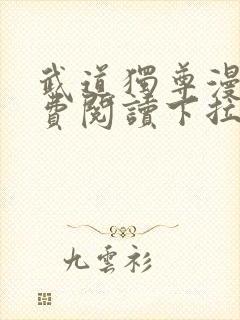 武道獨尊漫
費閱讀下拉
九雲衫